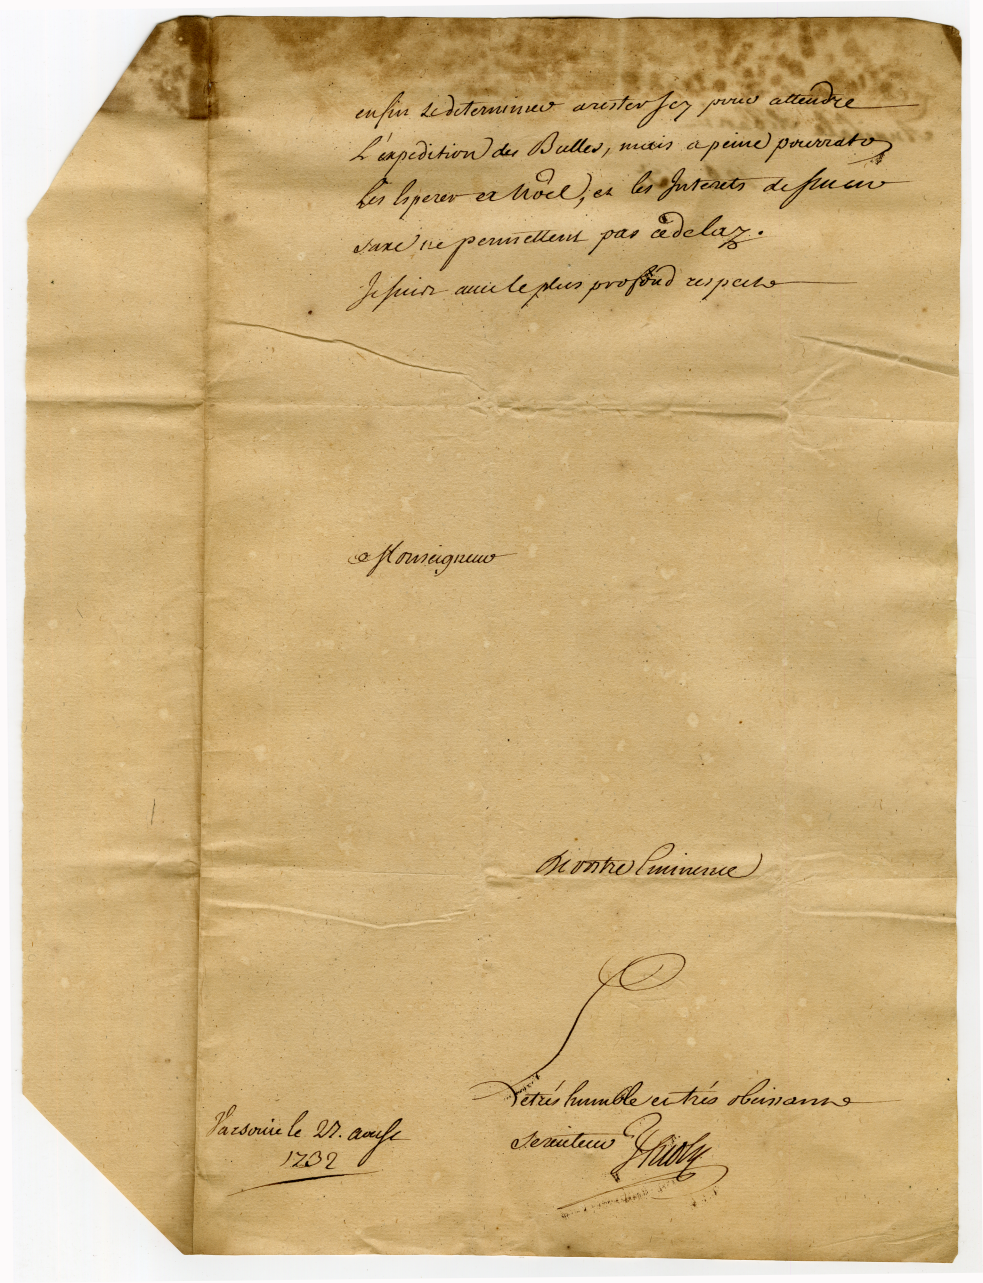 enfin se determiner a rester Jcy pour attendre
L'expedition des Bulles, mais a peine pourrat'o
Les Esperer a Nöel, et les Jnterets de
Saxe ne permettent pas ce delay.
Je suis avec le plus profond respect
Monseigneur
De vostre Eminence
Le trés humble et trés obeissant
Serviteur
Varsovie le 27. aoust
1732